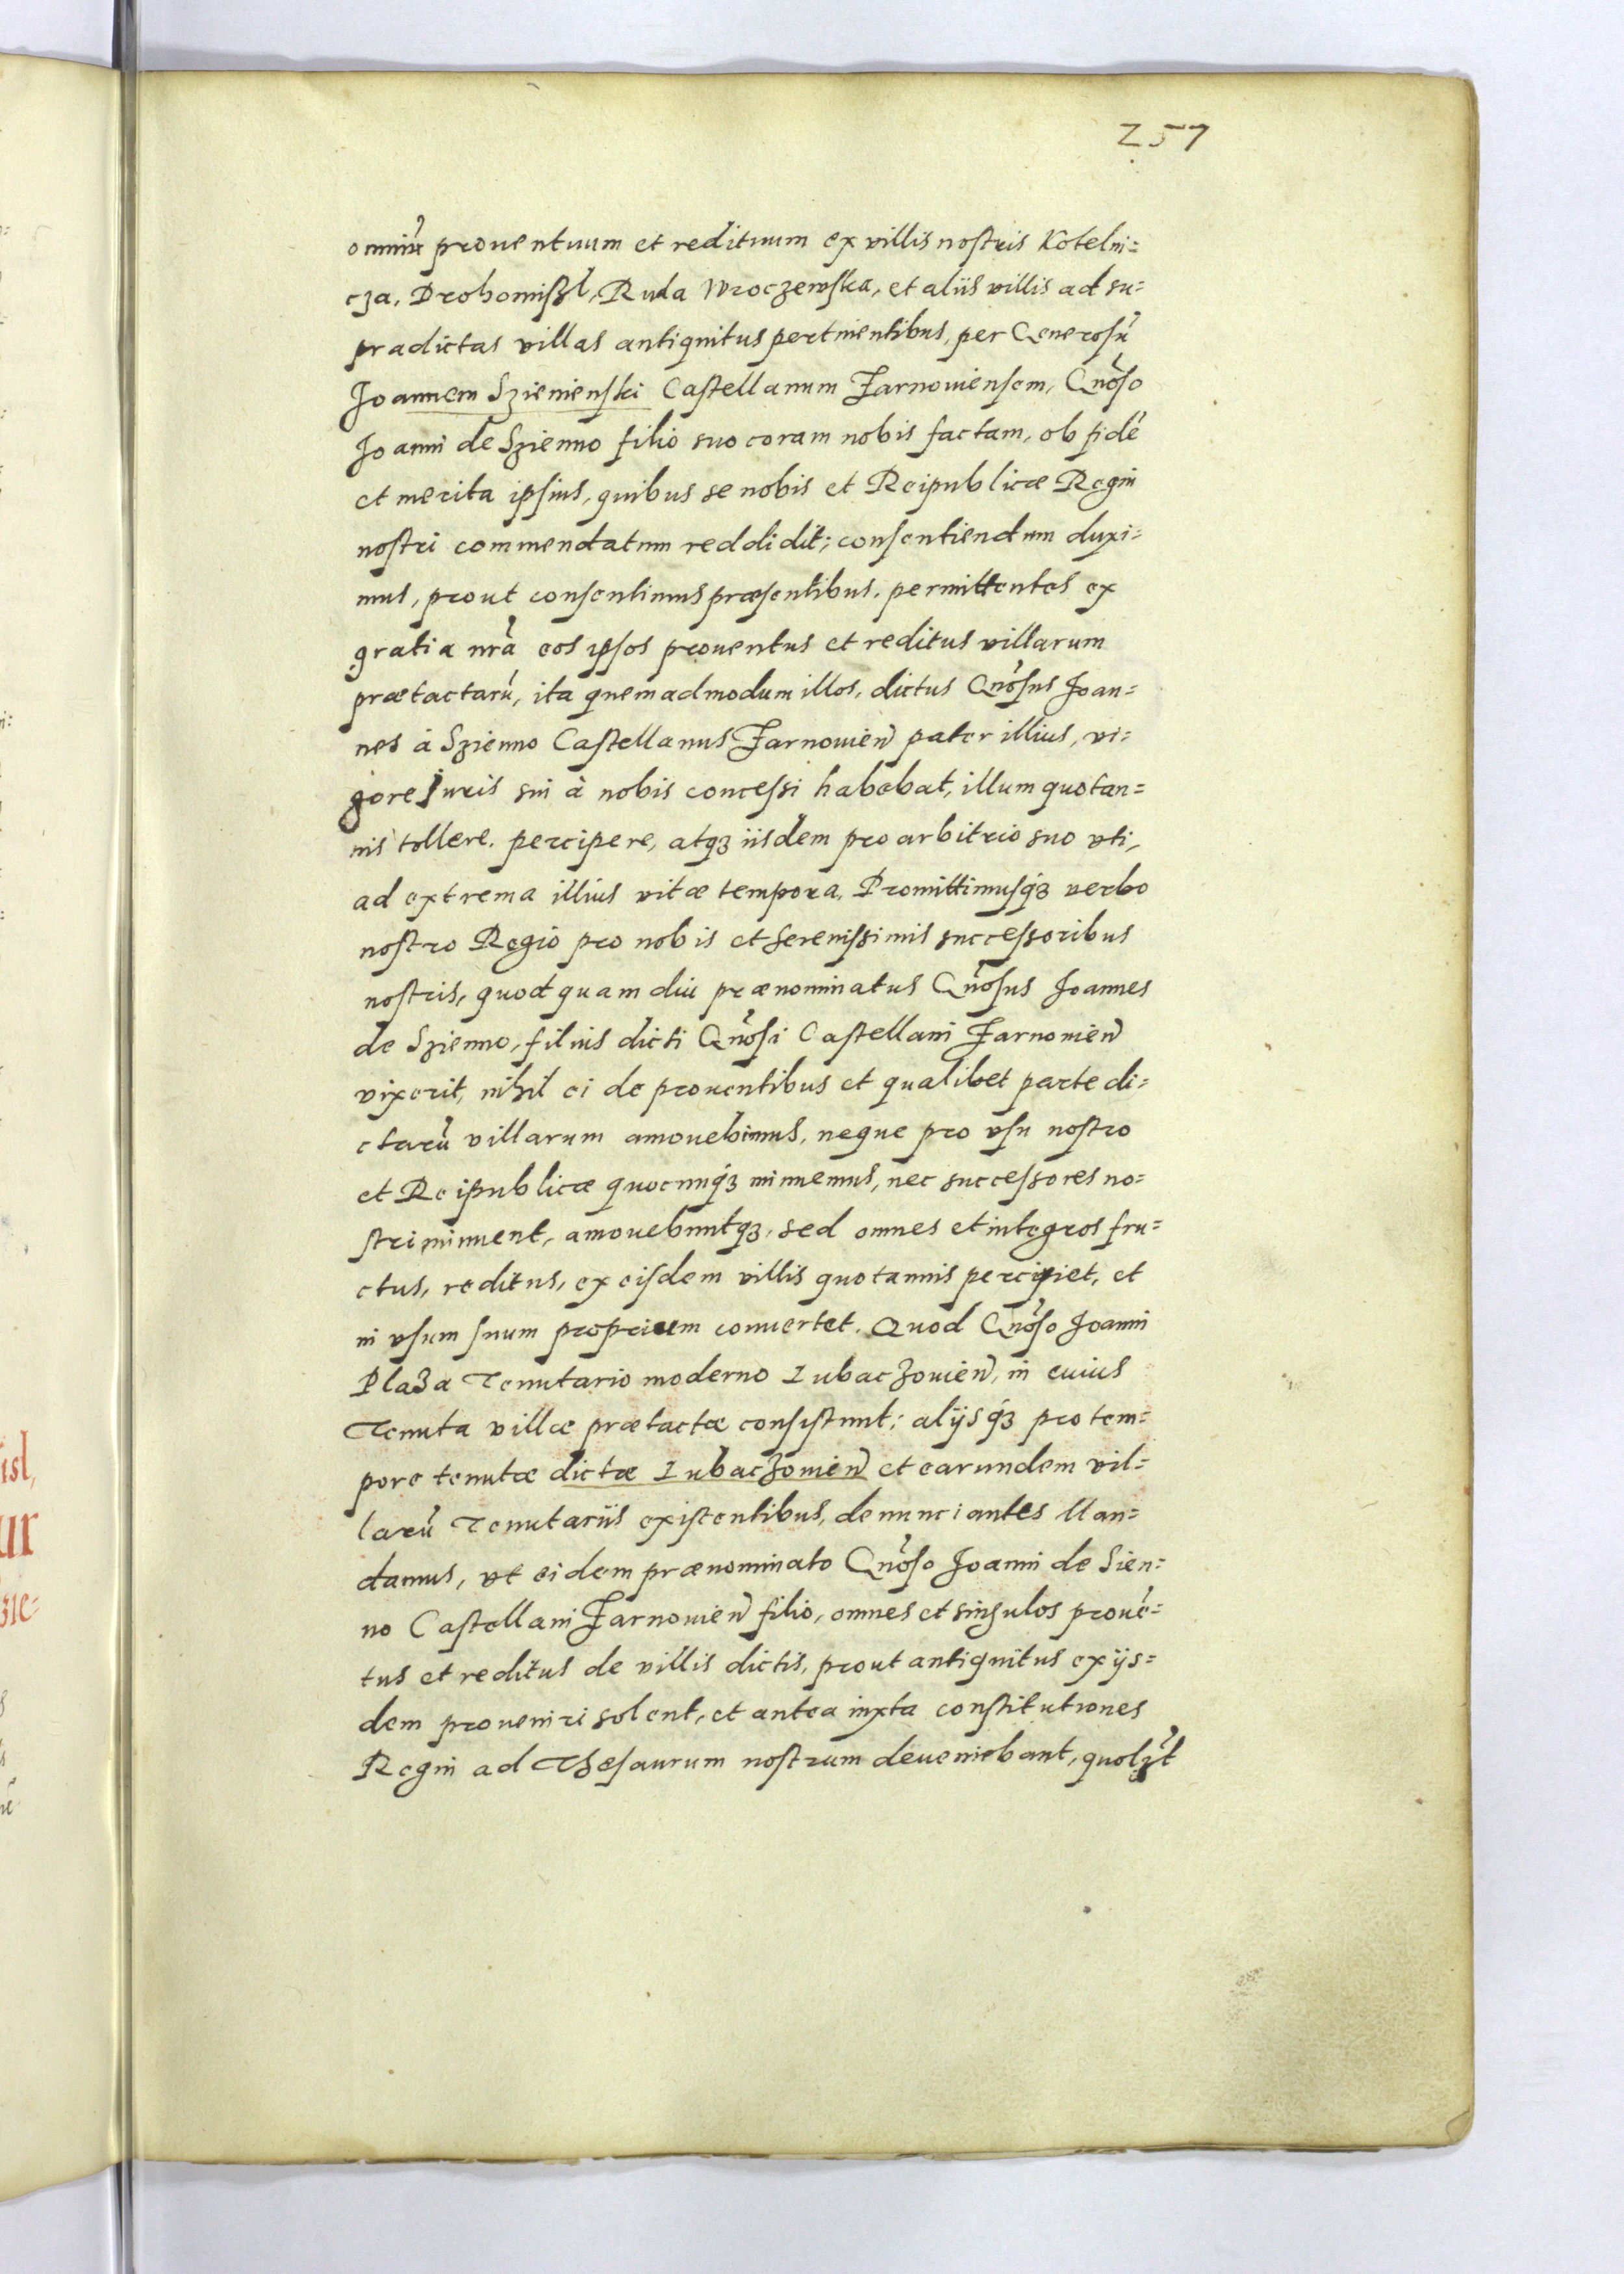 257
omniũ prouentuum et redituum ex villis nostris Kotelni=
cza, Drohomiszl, Ruda Wroczewska, et aliis villis ad su=
pradictas villas antiquitus pertinentibus, per Generosũ
Joannem Szienienski Castellanum Żarnouiensem, Gnõso
Joanni de Szienno filio suo coram nobis factam, ob fidẽ
et merita ipsius, quibus se nobis et Reipublicæ Regni
nostri commendatum reddidit; consentiendum duxi=
mus, prout consentimus præsentibus, permittentes ex
gratia nrã eos ipsos prouentus et reditus villarum
prætactarũ, ita quemadmodum illos, dictus Gnõsus Joan=
nes à Szienno Castellanus Żarnouieñ pater illius, vi=
gore Juris sui à nobis concessi habebat, illum quotan=
nis tollere, percipere, atqꝫ iisdem pro arbitrio suo vti,
ad extrema illius vitæ tempora. Promittimusqꝫ verbo
nostro Regio pro nobis et Serenissimis successoribus
nostris, quod quam diu prænominatus Gnõsus Joannes
de Szienno, filius dicti Gnõsi Castellani Żarnouieñ
vixerit, nihil ei de prouentibus et qualibet parte di=
ctarũ villarum amouebimus, neque pro vsu nostro
et Reipublicæ quocunqꝫ minuemus, nec successores no=
stri minuent, amouebuntqꝫ, sed omnes et integros fru=
ctus, reditus, ex eisdem villis quotannis percipiet, et
in vsum suum proprium conuertet. Quod Gnõso Joanni
Plaza Tenutario moderno Lubaczouieñ, in cuius
Tenuta villæ prætactæ consistunt; alijsqꝫ pro tem=
pore tenutæ dictæ Lubaczouieñ et earundem vil=
larũ Tenutariis existentibus, denunciantes Man=
damus, vt eidem prænominato Gnõso Joanni de Sien=
no Castellani Żarnouieñ filio, omnes et singulos prouẽ=
tus et reditus de villis dictis, prout antiquitus ex ijs=
dem proueniri solent, et antea iuxta constitutiones
Regni ad Thesaurum nostrum deueniebant, quolꝫt